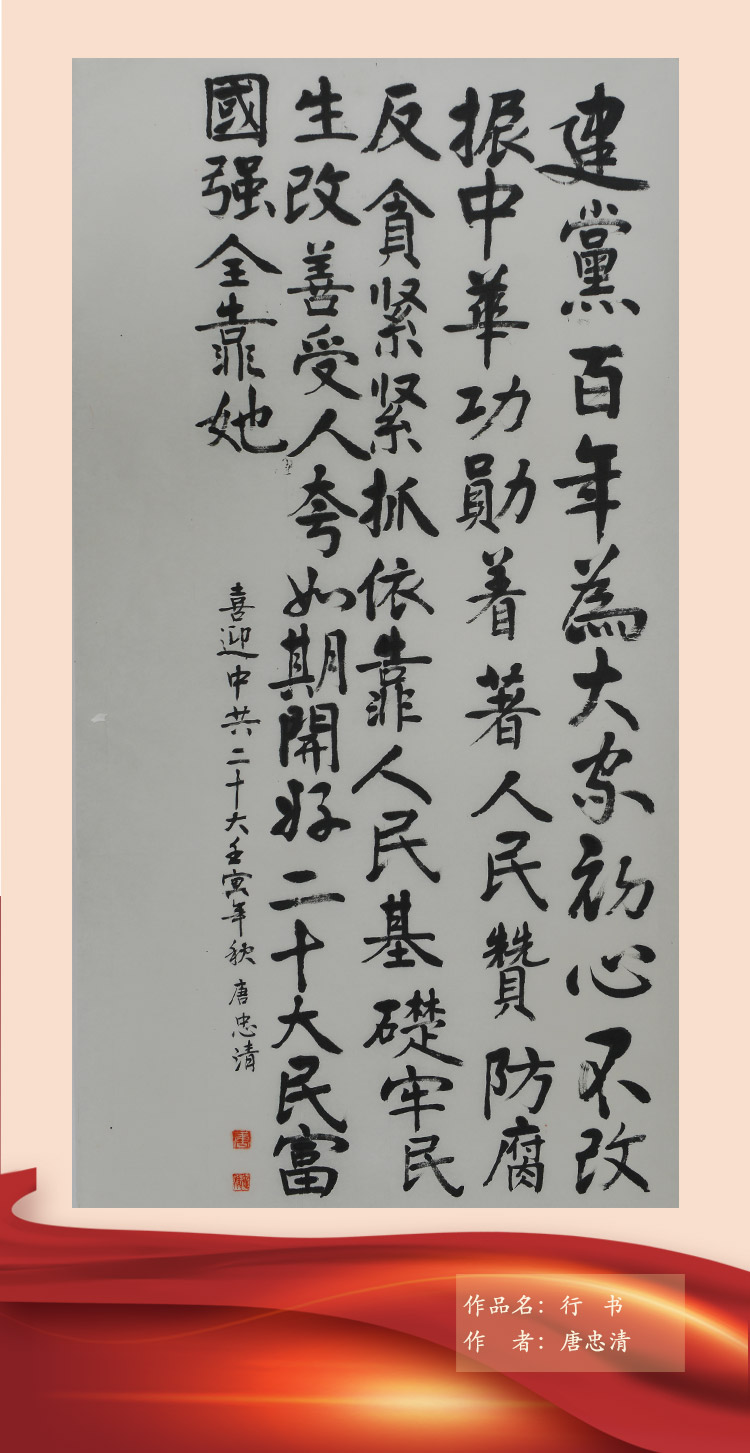 建黨百年為大家初心不改
振中華功勛着著人民贊防腐
反貪緊緊抓依靠人民基礎牢民
生改善受人夸如期開好二十大民富
國强全靠她
喜迎中共二十大壬寅年秋 唐忠清
作品名：行 书
作 者：唐忠清